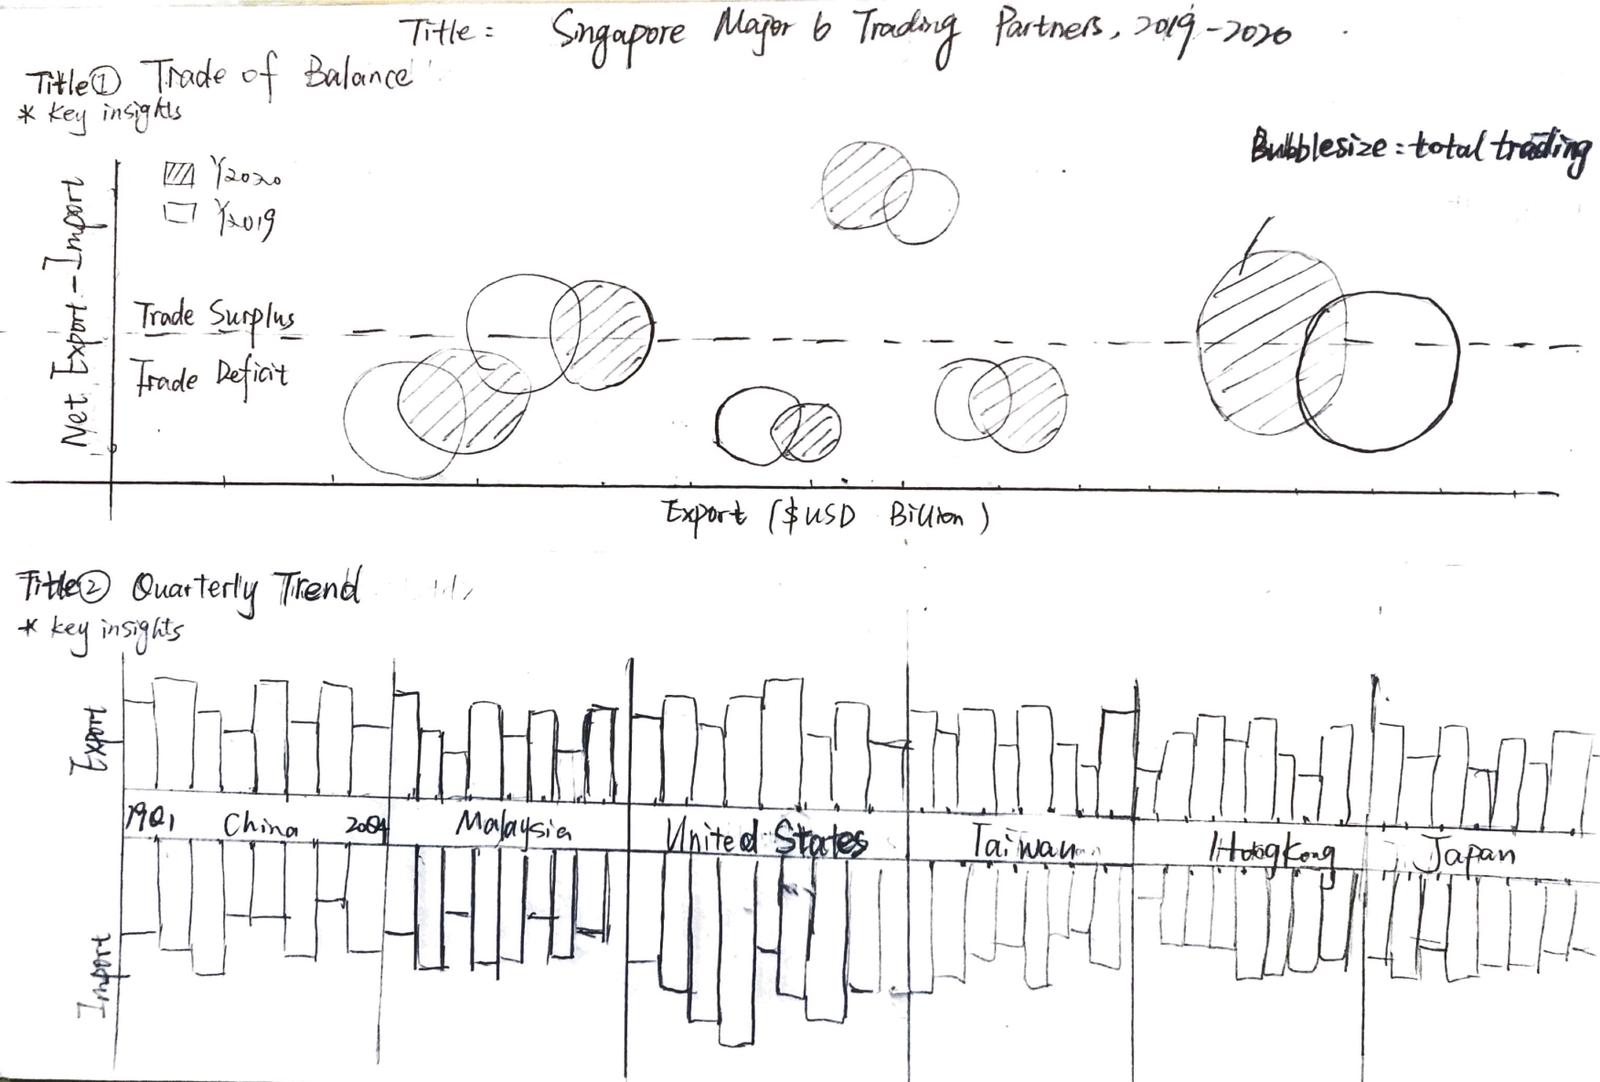 Title: Singapore Major 6 Trading Partners, 2019-2020
Title① Trade of Balance
* Key insights
Bubblesize: total trading
Y2020
Y2019
Net Export-Import
Trade Surplus
Trade Deficit
Export ($USD Billion)
Title② Quarterly Trend
* Key insights
Export
19Q1 China 20Q4 Malaysia United States Taiwan HongKong Japan
Import